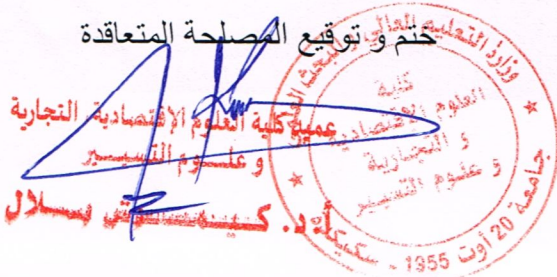 ختم و توقيع المصلحة المتعاقدة
عميد كلية العلوم الإقتصادية، التجارية
و علـــوم التسييـــر
أ.د. بـــلال
وزارة التعليم العالي والبحث
جامعة 20 أوت 1955 - سكيكدة
كلية
العلوم الإقتصادية
و التجارية
و علوم التسيير